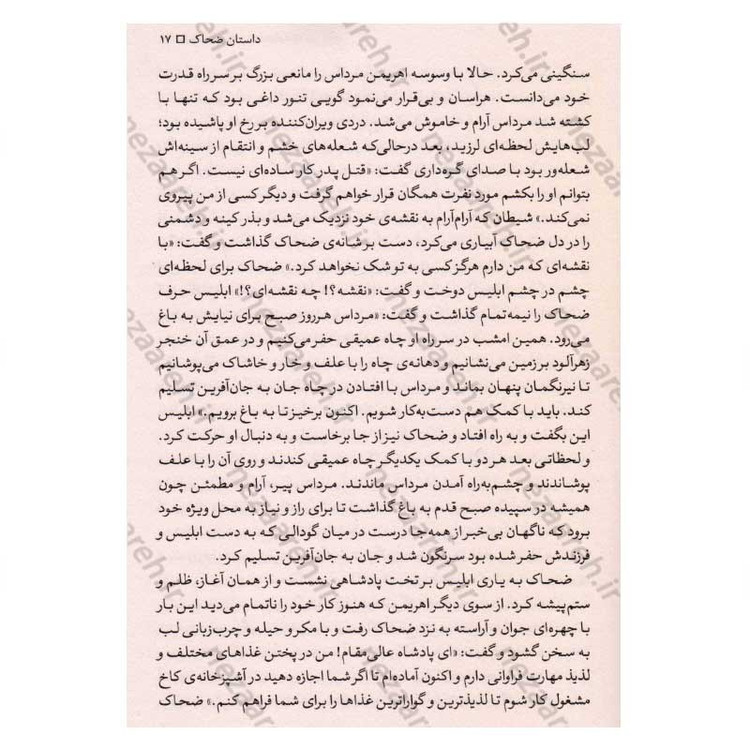 داستان ضحاک □ ۱۷
سنگینی می‌کرد. حالا با وسوسه اهریمن مرداس را مانعی بزرگ بر سر راه قدرت
خود می‌دانست. هراسان و بی‌قرار می‌نمود گویی تنور داغی بود که تنها با
کشته شد مرداس آرام و خاموش می‌شد. دردی ویران‌کننده بر رخ او پاشیده بود؛
لب‌هایش لحظه‌ای لرزید، بعد درحالی‌که شعله‌های خشم و انتقام از سینه‌اش
شعله‌ور بود با صدای گره‌داری گفت: «قتل پدر کار ساده‌ای نیست. اگر هم
بتوانم او را بکشم مورد نفرت همگان قرار خواهم گرفت و دیگر کسی از من پیروی
نمی‌کند.» شیطان که آرام‌آرام به نقشه‌ی خود نزدیک می‌شد و بذر کینه و دشمنی
را در دل ضحاک آبیاری می‌کرد، دست بر شانه‌ی ضحاک گذاشت و گفت: «با
نقشه‌ای که من دارم هرگز کسی به تو شک نخواهد کرد.» ضحاک برای لحظه‌ای
چشم در چشم ابلیس دوخت و گفت: «نقشه؟! چه نقشه‌ای؟!» ابلیس حرف
ضحاک را نیمه‌تمام گذاشت و گفت: «مرداس هرروز صبح برای نیایش به باغ
می‌رود. همین امشب در سر راه او چاه عمیقی حفر می‌کنیم و در عمق آن خنجر
زهرآلود بر زمین می‌نشانیم و دهانه‌ی چاه را با علف و خار و خاشاک می‌پوشانیم
تا نیرنگمان پنهان بماند و مرداس با افتادن در چاه جان به جان‌آفرین تسلیم
کند. باید با کمک هم دست‌به‌کار شویم. اکنون برخیز تا به باغ برویم.» ابلیس
این بگفت و به راه افتاد و ضحاک نیز از جا برخاست و به دنبال او حرکت کرد.
و لحظاتی بعد هر دو با کمک یکدیگر چاه عمیقی کندند و روی آن را با علف
پوشاندند و چشم‌به‌راه آمدن مرداس ماندند. مرداس پیر، آرام و مطمئن چون
همیشه در سپیده صبح قدم به باغ گذاشت تا برای راز و نیاز به محل ویژه خود
برود که ناگهان بی‌خبر از همه‌جا درست در میان گودالی که به دست ابلیس و
فرزندش حفر شده بود سرنگون شد و جان به جان‌آفرین تسلیم کرد.
ضحاک به یاری ابلیس بر تخت پادشاهی نشست و از همان آغاز، ظلم و
ستم پیشه کرد. از سوی دیگر اهریمن که هنوز کار خود را ناتمام می‌دید این بار
با چهره‌ای جوان و آراسته به نزد ضحاک رفت و با مکر و حیله و چرب‌زبانی لب
به سخن گشود و گفت: «ای پادشاه عالی‌مقام! من در پختن غذاهای مختلف و
لذیذ مهارت فراوانی دارم و اکنون آماده‌ام تا اگر شما اجازه دهید در آشپزخانه‌ی کاخ
مشغول کار شوم تا لذیذترین و گواراترین غذاها را برای شما فراهم کنم.» ضحاک
nezaareh.ir